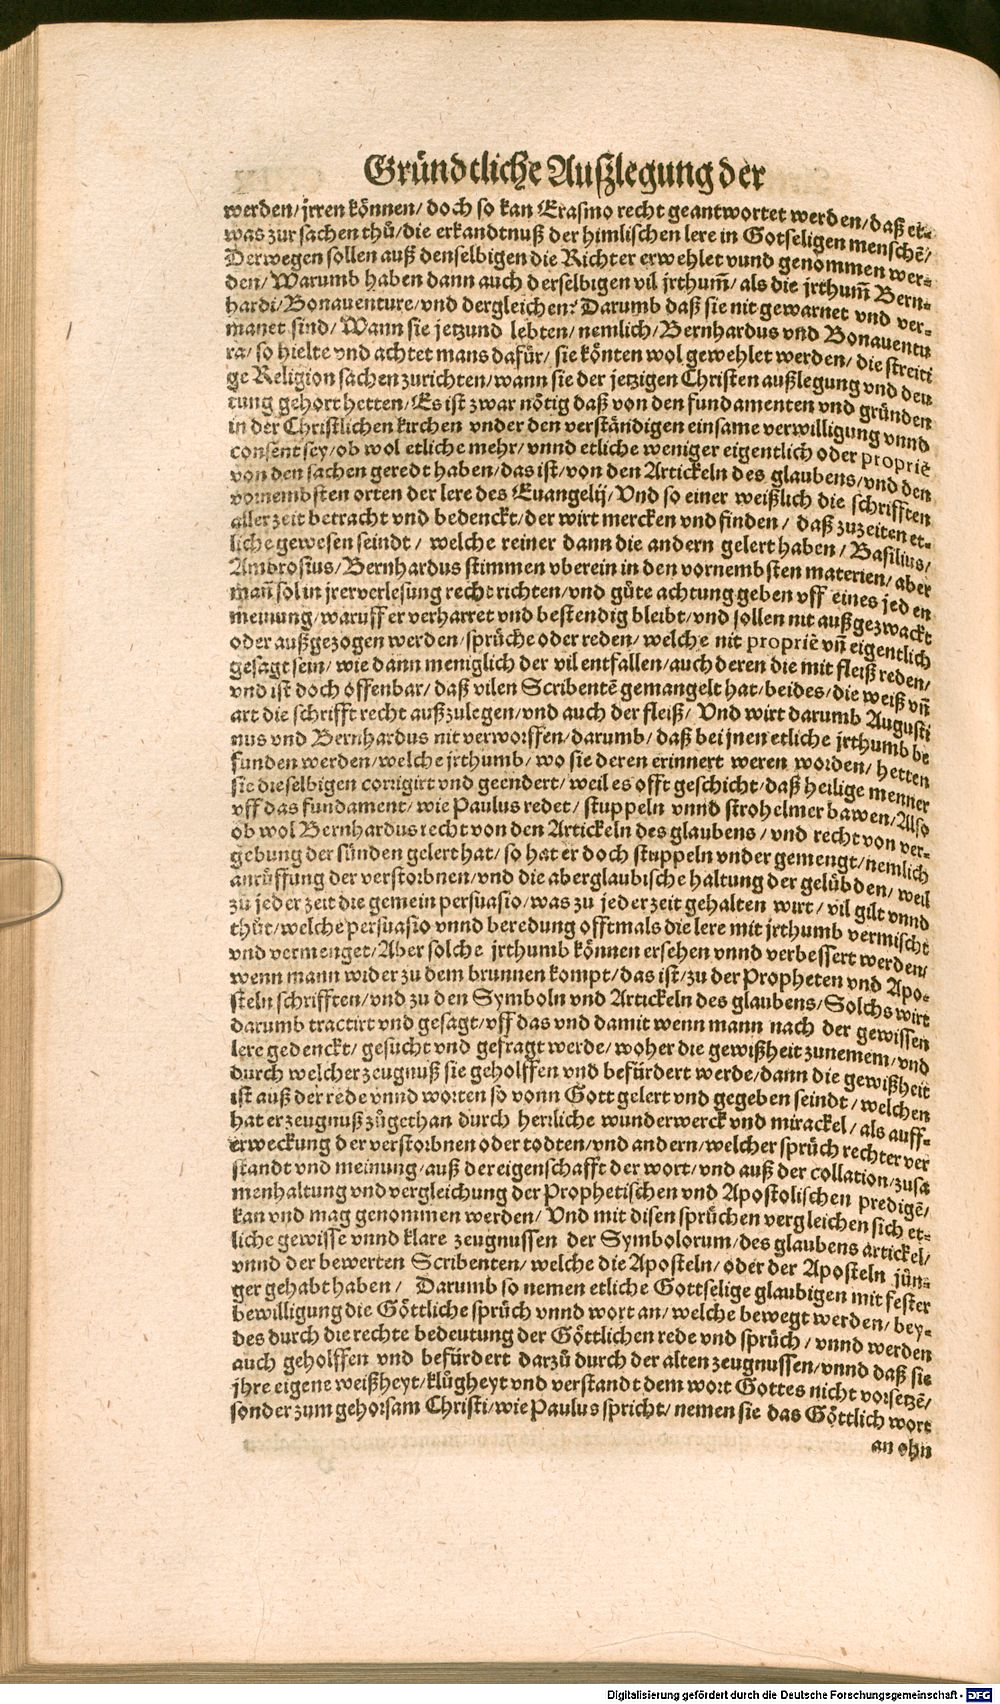 Gründtliche Außlegung der
werden/ jrren können/ doch so kan Erasmo recht geantwortet werden/ daß et-
was zur sachen thů/ die erkandtnuß der himlischen lere in Gotseligen menschē/
Derwegen sollen auß denselbigen die Richter erwehlet vund genommen wer-
den/ Warumb haben dann auch derselbigen vil jrthum̃/ als die jrthum̃ Bern-
hardi/ Bonauenture/ vnd dergleichen? Darumb daß sie nit gewarnet vnd ver-
manet sind/ Wann sie jetzund lebten/ nemlich/ Bernhardus vnd Bonauentu
ra/ so hielte vnd achtet mans dafür/ sie könten wol gewehlet werden/ die streiti
ge Religion sachen zurichten/ wann sie der jetzigen Christen außlegung vnd deu
tung gehort hetten/ Es ist zwar nötig daß von den fundamenten vnd gründen
in der Christlichen kirchen vnder den verständigen einsame verwilligung vnnd
consent sey/ ob wol etliche mehr/ vnnd etliche weniger eigentlich oder propriè
von den sachen geredt haben/ das ist/ von den Artickeln des glaubens/ vnd den
vornembsten orten der lere des Euangelij/ Vnd so einer weißlich die schrifften
aller zeit betracht vnd bedenckt/ der wirt mercken vnd finden/ daß zuzeiten et-
liche gewesen seindt/ welche reiner dann die andern gelert haben/ Basilius/
Ambrosius/ Bernhardus stimmen vberein in den vornembsten materien/ aber
man̄ sol in jrer verlesung recht richten/ vnd gůte achtung geben vff eines jeden
meinung/ waruff er verharret vnd bestendig bleibt/ vnd sollen nit außgezwackt
oder außgezogen werden/ sprüche oder reden/ welche nit propriè vn̄ eigentlich
gesagt sein/ wie dann meniglich der vil entfallen/ auch deren die mit fleiß reden/
vnd ist doch offenbar/ daß vilen Scribentē gemangelt hat/ beides/ die weiß vn̄
art die schrifft recht außzulegen/ vnd auch der fleiß/ Vnd wirt darumb Augusti
nus vnd Bernhardus nit verworffen/ darumb/ daß bei jnen etliche jrthumb be
funden werden/ welche jrthumb/ wo sie deren erinnert weren worden/ hetten
sie dieselbigen corrigirt vnd geendert/ weil es offt geschicht/ daß heilige menner
vff das fundament/ wie Paulus redet/ stuppeln vnnd strohelmer bawen/ Also
ob wol Bernhardus recht von den Artickeln des glaubens/ vnd recht von ver-
gebung der sünden gelert hat/ so hat er doch stuppeln vnder gemengt/ nemlich
anrüffung der verstorbnen/ vnd die aberglaubische haltung der gelübden/ weil
zů jeder zeit die gemein persuasio/ was zu jeder zeit gehalten wirt/ vil gilt vnnd
thůt/ welche persuasio vnnd beredung offtmals die lere mit jrthumb vermischt
vnd vermenget/ Aber solche jrthumb können ersehen vnnd verbessert werden/
wenn mann wider zu dem brunnen kompt/ das ist/ zu der Propheten vnd Apo-
steln schrifften/ vnd zu den Symboln vnd Artickeln des glaubens/ Solchs wirt
darumb tractirt vnd gesagt/ vff das vnd damit wenn mann nach der gewissen
lere gedenckt/ gesucht vnd gefragt werde/ woher die gewißheit zunemem/ vnd
durch welcher zeugnuß sie geholffen vnd befürdert werde/ dann die gewißheit
ist auß der rede vnnd worten so vonn Gott gelert vnd gegeben seindt/ welchen
hat er zeugnuß zůgethan durch herrliche wunderwerck vnd mirackel/ als auff-
erweckung der verstorbnen oder todten/ vnd andern/ welcher sprüch rechter ver
standt vnd meinung/ auß der eigenschafft der wort/ vnd auß der collation/ zusa
menhaltung vnd vergleichung der Prophetischen vnd Apostolischen predigē/
kan vnd mag genommen werden/ Vnd mit disen sprüchen vergleichen sich et-
liche gewisse vnnd klare zeugnussen der Symbolorum/ des glaubens artickel/
vnnd der bewerten Scribenten/ welche die Aposteln/ oder der Aposteln jün-
ger gehabt haben/ Darumb so nemen etliche Gottselige glaubigen mit fester
bewilligung die Göttliche sprüch vnnd wort an/ welche bewegt werden/ bey-
des durch die rechte bedeutung der Göttlichen rede vnd sprüch/ vnnd werden
auch geholffen vnd befürdert darzů durch der alten zeugnussen/ vnnd daß sie
jhre eigene weißheyt/ klůgheyt vnd verstandt dem wort Gottes nicht vorsetzē/
sonder zum gehorsam Christi/ wie Paulus spricht/ nemen sie das Göttlich wort
an ohn
Digitalisierung gefördert durch die Deutsche Forschungsgemeinschaft - DFG